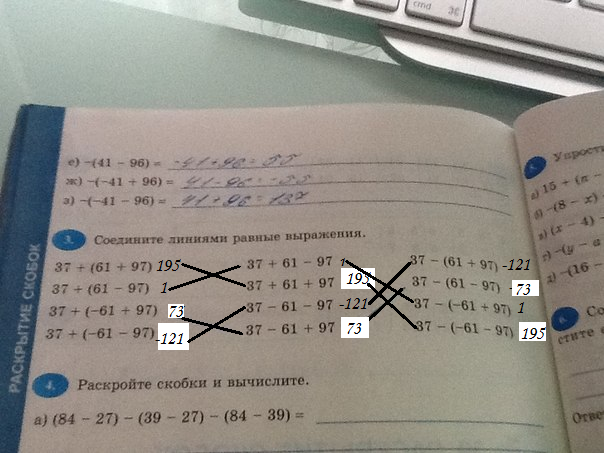 cmd
⌘
е) –(41 – 96) = -41+96=55
ж) –(–41 + 96) = 41-96=-55
з) –(–41 – 96) = 41+96=137
РАСКРЫТИЕ СКОБОК
3. Соедините линиями равные выражения.
37 + (61 + 97) 195 37 + 61 – 97 1 37 – (61 + 97) -121
37 + (61 – 97) 1 37 + 61 + 97 195 37 – (61 – 97) 73
37 + (–61 + 97) 73 37 – 61 – 97 -121 37 – (–61 + 97) 1
37 + (–61 – 97) -121 37 – 61 + 97 73 37 – (–61 – 97) 195
4. Раскройте скобки и вычислите.
а) (84 – 27) – (39 – 27) – (84 – 39) =
5. Упрости
а) 15 + (n –
б) –(8 – x)
в) (x – 4) –
г) –(y – a
д) –(16 –
6. Со
стите
Ответ